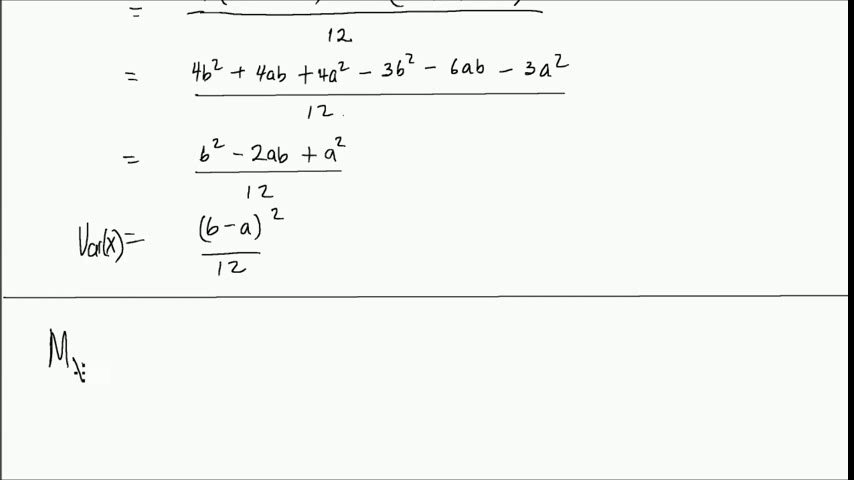 =
12
= 4b² + 4ab + 4a² - 3b² - 6ab - 3a²
12
= b² - 2ab + a²
12
Var(x) = (b-a)²
12
M